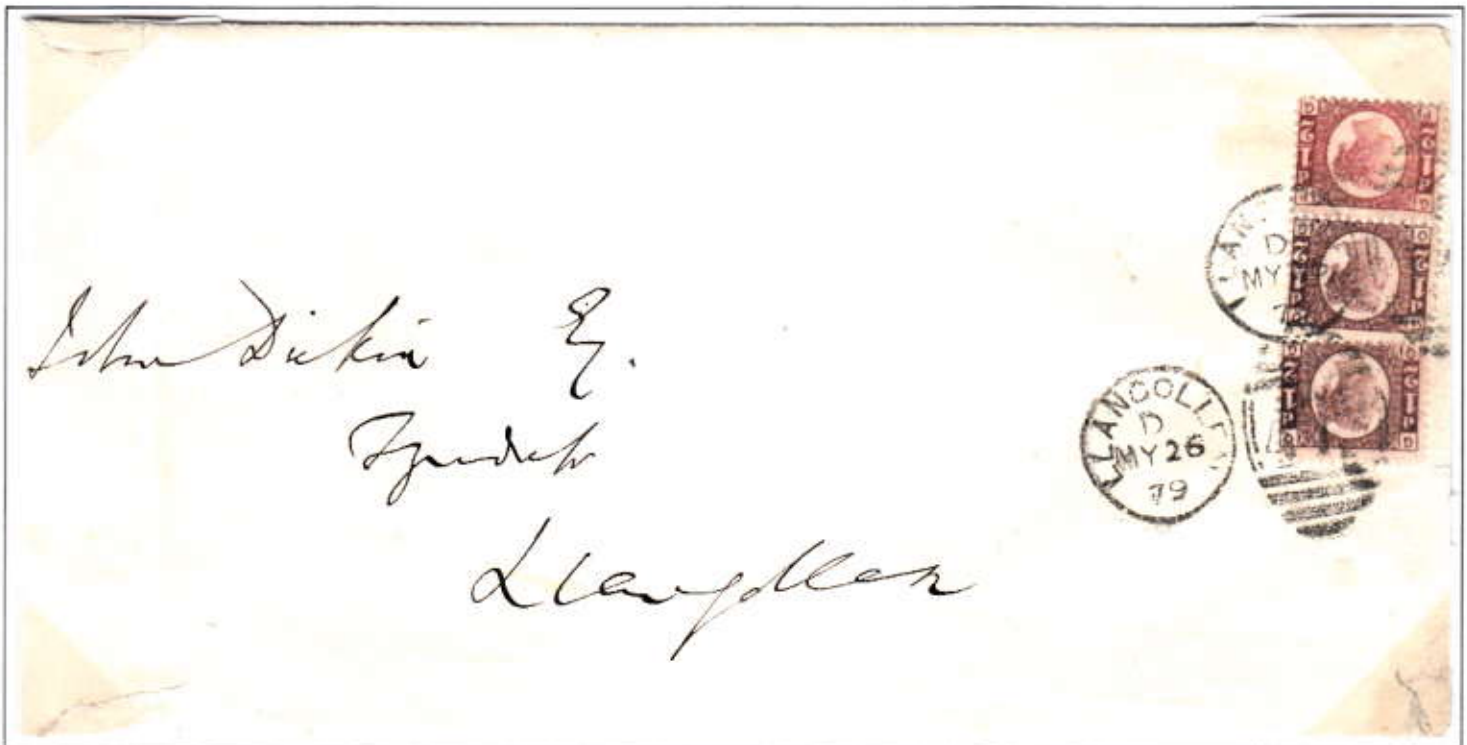 John Dickin Esq.
Llangollen
LLANGOLLEN
D
MY 26
79
LLAN
D
MY
7